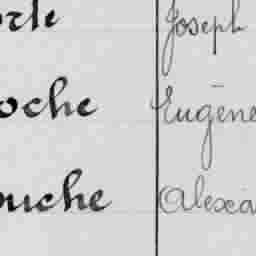 orte Joseph
oche Eugène
ouche Alexa